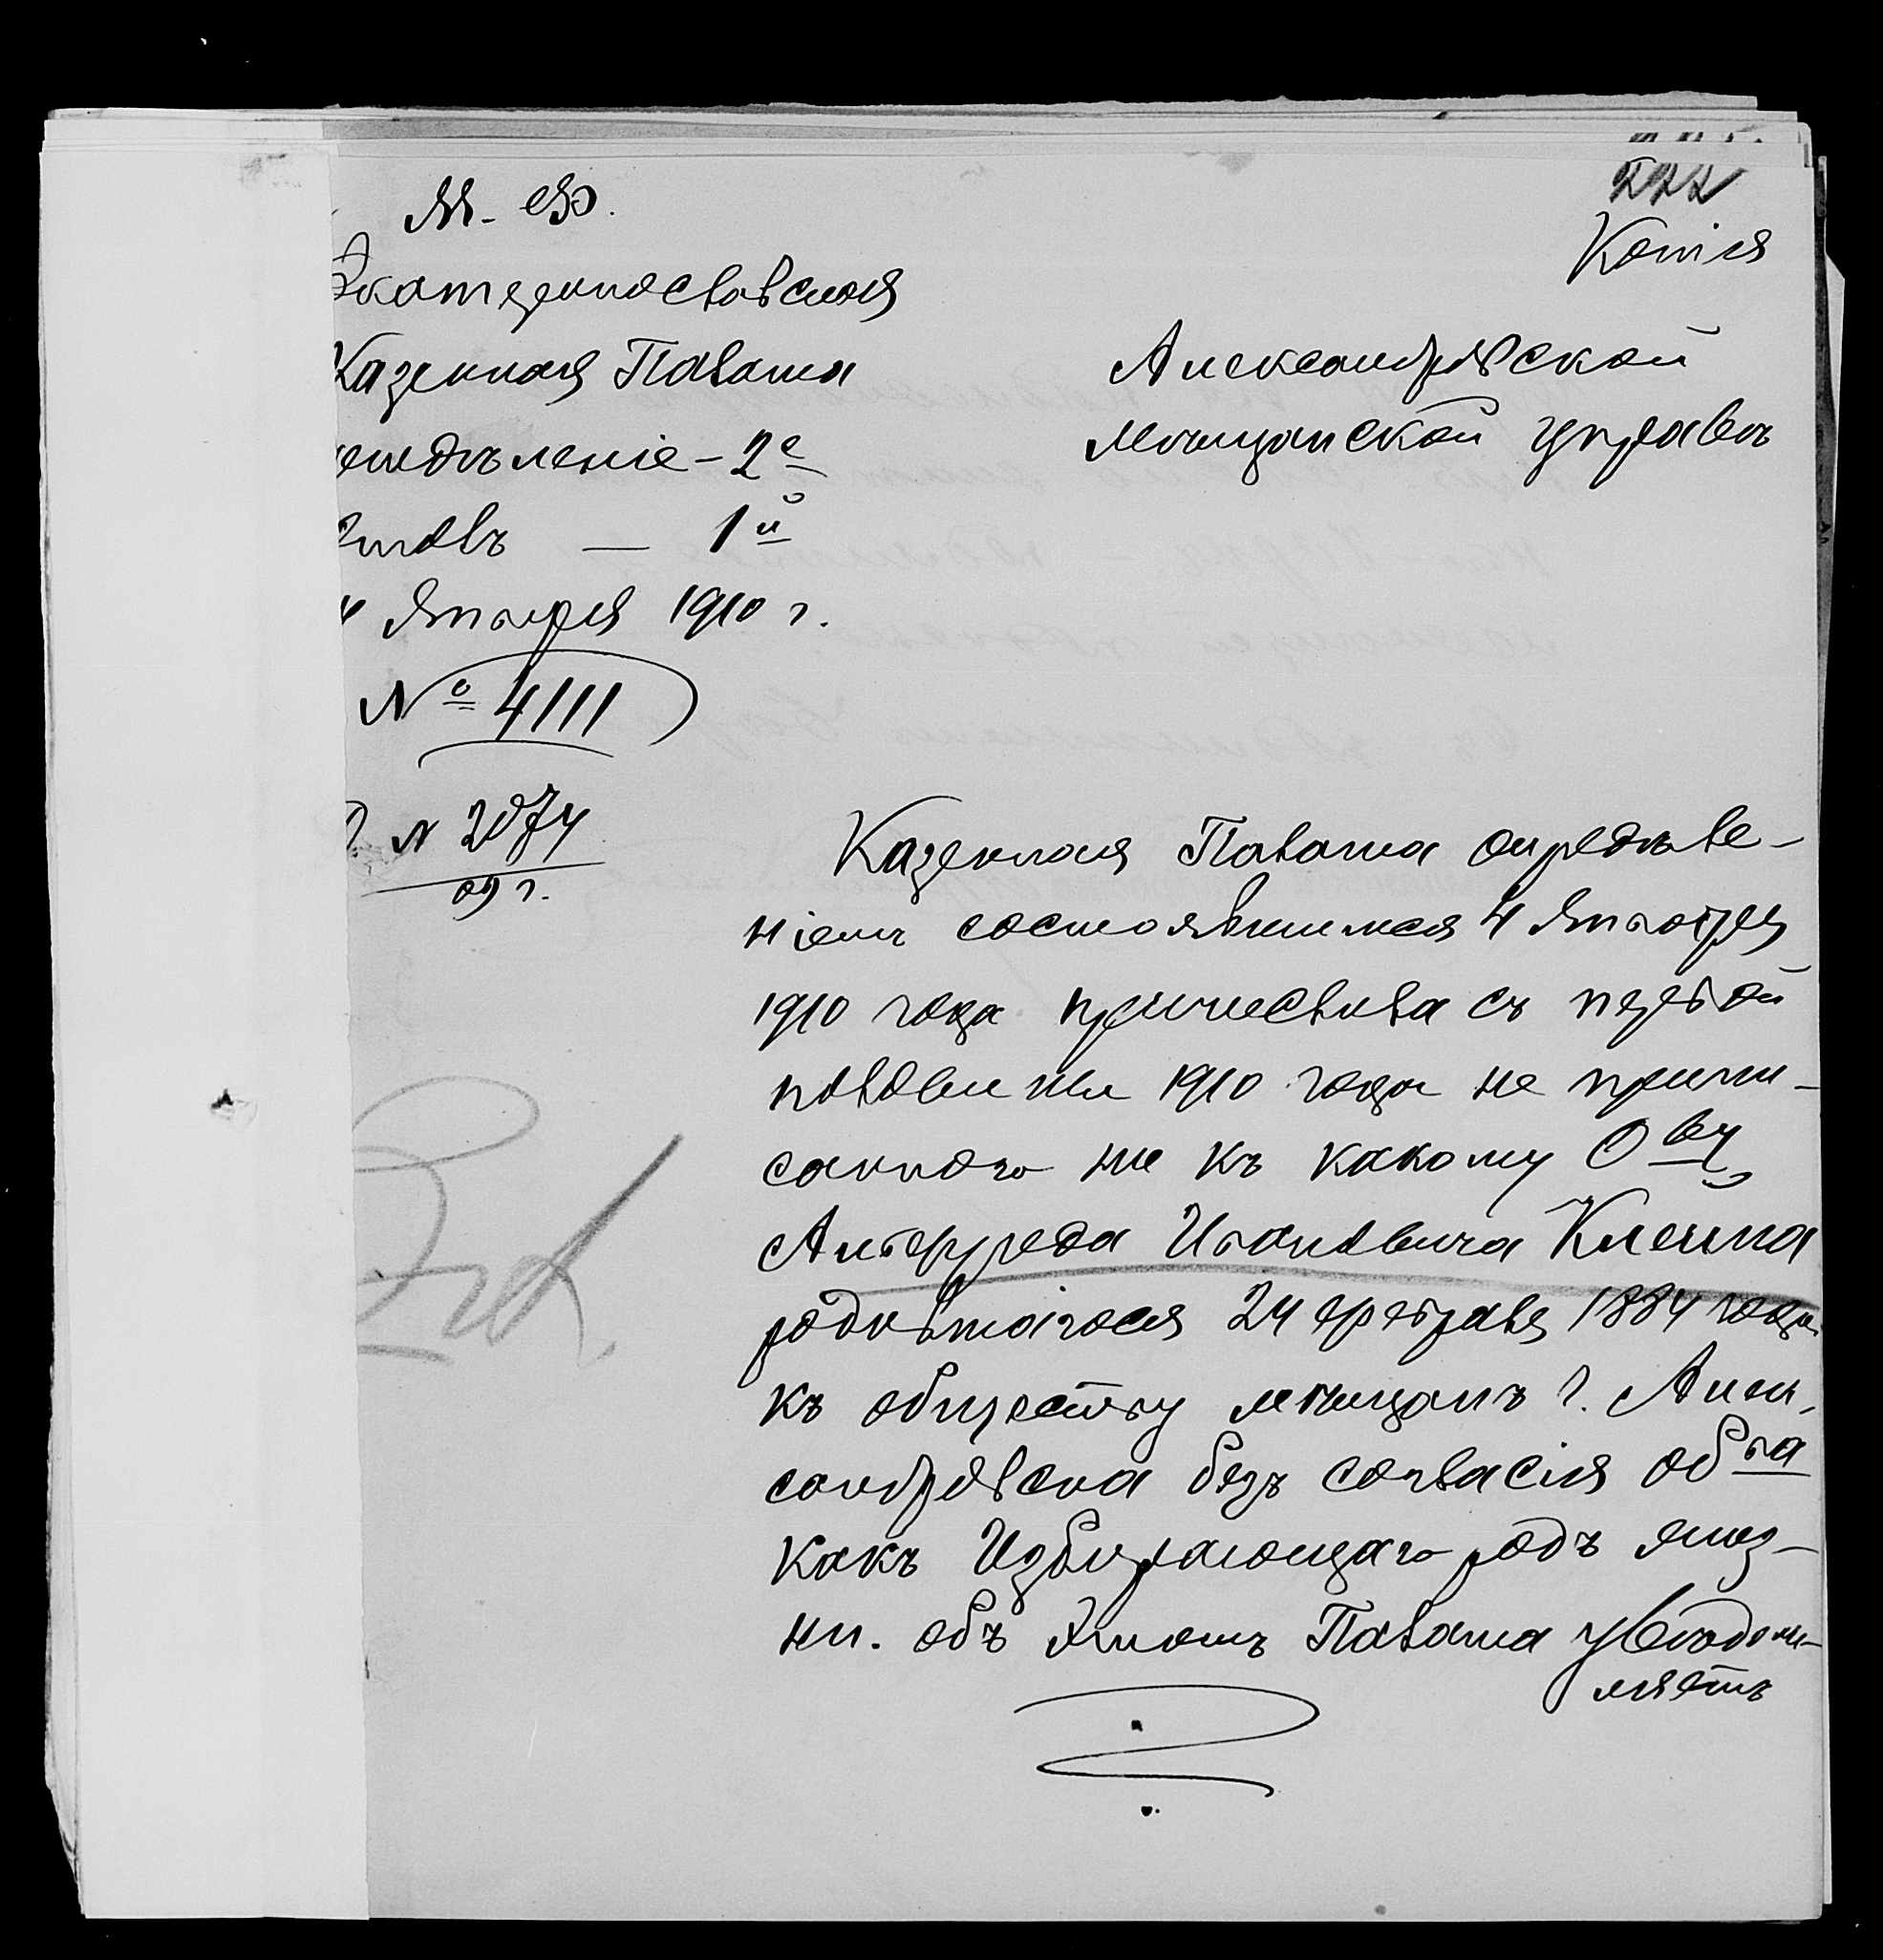 М. Ф.
Екатеринославская
Казенная Палата
Отдѣленіе - 2е
Столъ — 1й
4 Января 1910 г.
№ 4111
Д. № 2074
09 г.
Копія
Александровской
мѣщанской управѣ
Казенная Палата опредѣле-
ніемъ состоявшимся 4 Января
1910 года причислила съ первой
половины 1910 года не припи-
саннаго ни къ какому О ву,
Альфреда Ивановича Клейна
родившагося 24 февраля 1884 года
къ обществу мѣщанъ г. Алек-
сандровска безъ согласія об ва
какъ Избирающаго родъ жиз-
ни. объ этомъ Палата увѣдом-
ляетъ